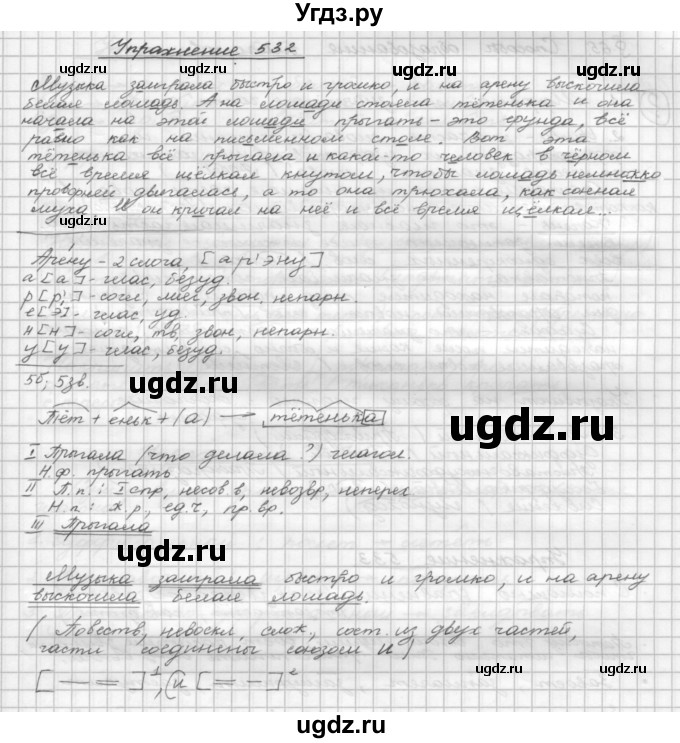 Угдз.ру
Упражнение 532
Музыка заиграла быстро и громко, и на арену выскочила
белая лошадь. А на лошади стояла тётенька и она
начала на этой лошади прыгать – это ерунда, всё
равно как на письменном столе. Вот эта
тётенька всё прыгала и какой-то человек в чёрном
всё время щёлкал кнутом, чтобы лошадь немножко
проворней двигалась, а то она трюхала, как сонная
муха. И он кричал на неё и всё время щёлкал...
Арену – 2 слога, [а р' эну]
а [а] – глас, безуд.
р [р'] – согл, мяг, звон. непарн.
е [э] – глас, уд.
н [н] – согл, тв, звон, непарн.
у [у] – глас, безуд.
5б, 5зв.
Тёт + еньк + (а) → тётенька
I Прыгала (что делала?) глагол.
Н.ф. прыгать
II П.п.: I спр, несов в, невозвр, неперех
Н.п: ж.р, ед.ч, пр.вр.
III Прыгала
Музыка заиграла быстро и громко, и на арену
выскочила белая лошадь.
(Повеств, невоскл, слож, сост. из двух частей,
части соединены союзом и)
[— =]¹, (и [= –]²
ugdz.ru ugdz.ru ugdz.ru
ugdz.ru ugdz.ru ugdz.ru
ugdz.ru ugdz.ru ugdz.ru
ugdz.ru ugdz.ru ugdz.ru
ugdz.ru